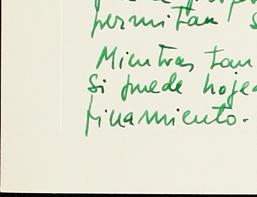 permitan s
Mientras tan
si puede hoje
finamiento.